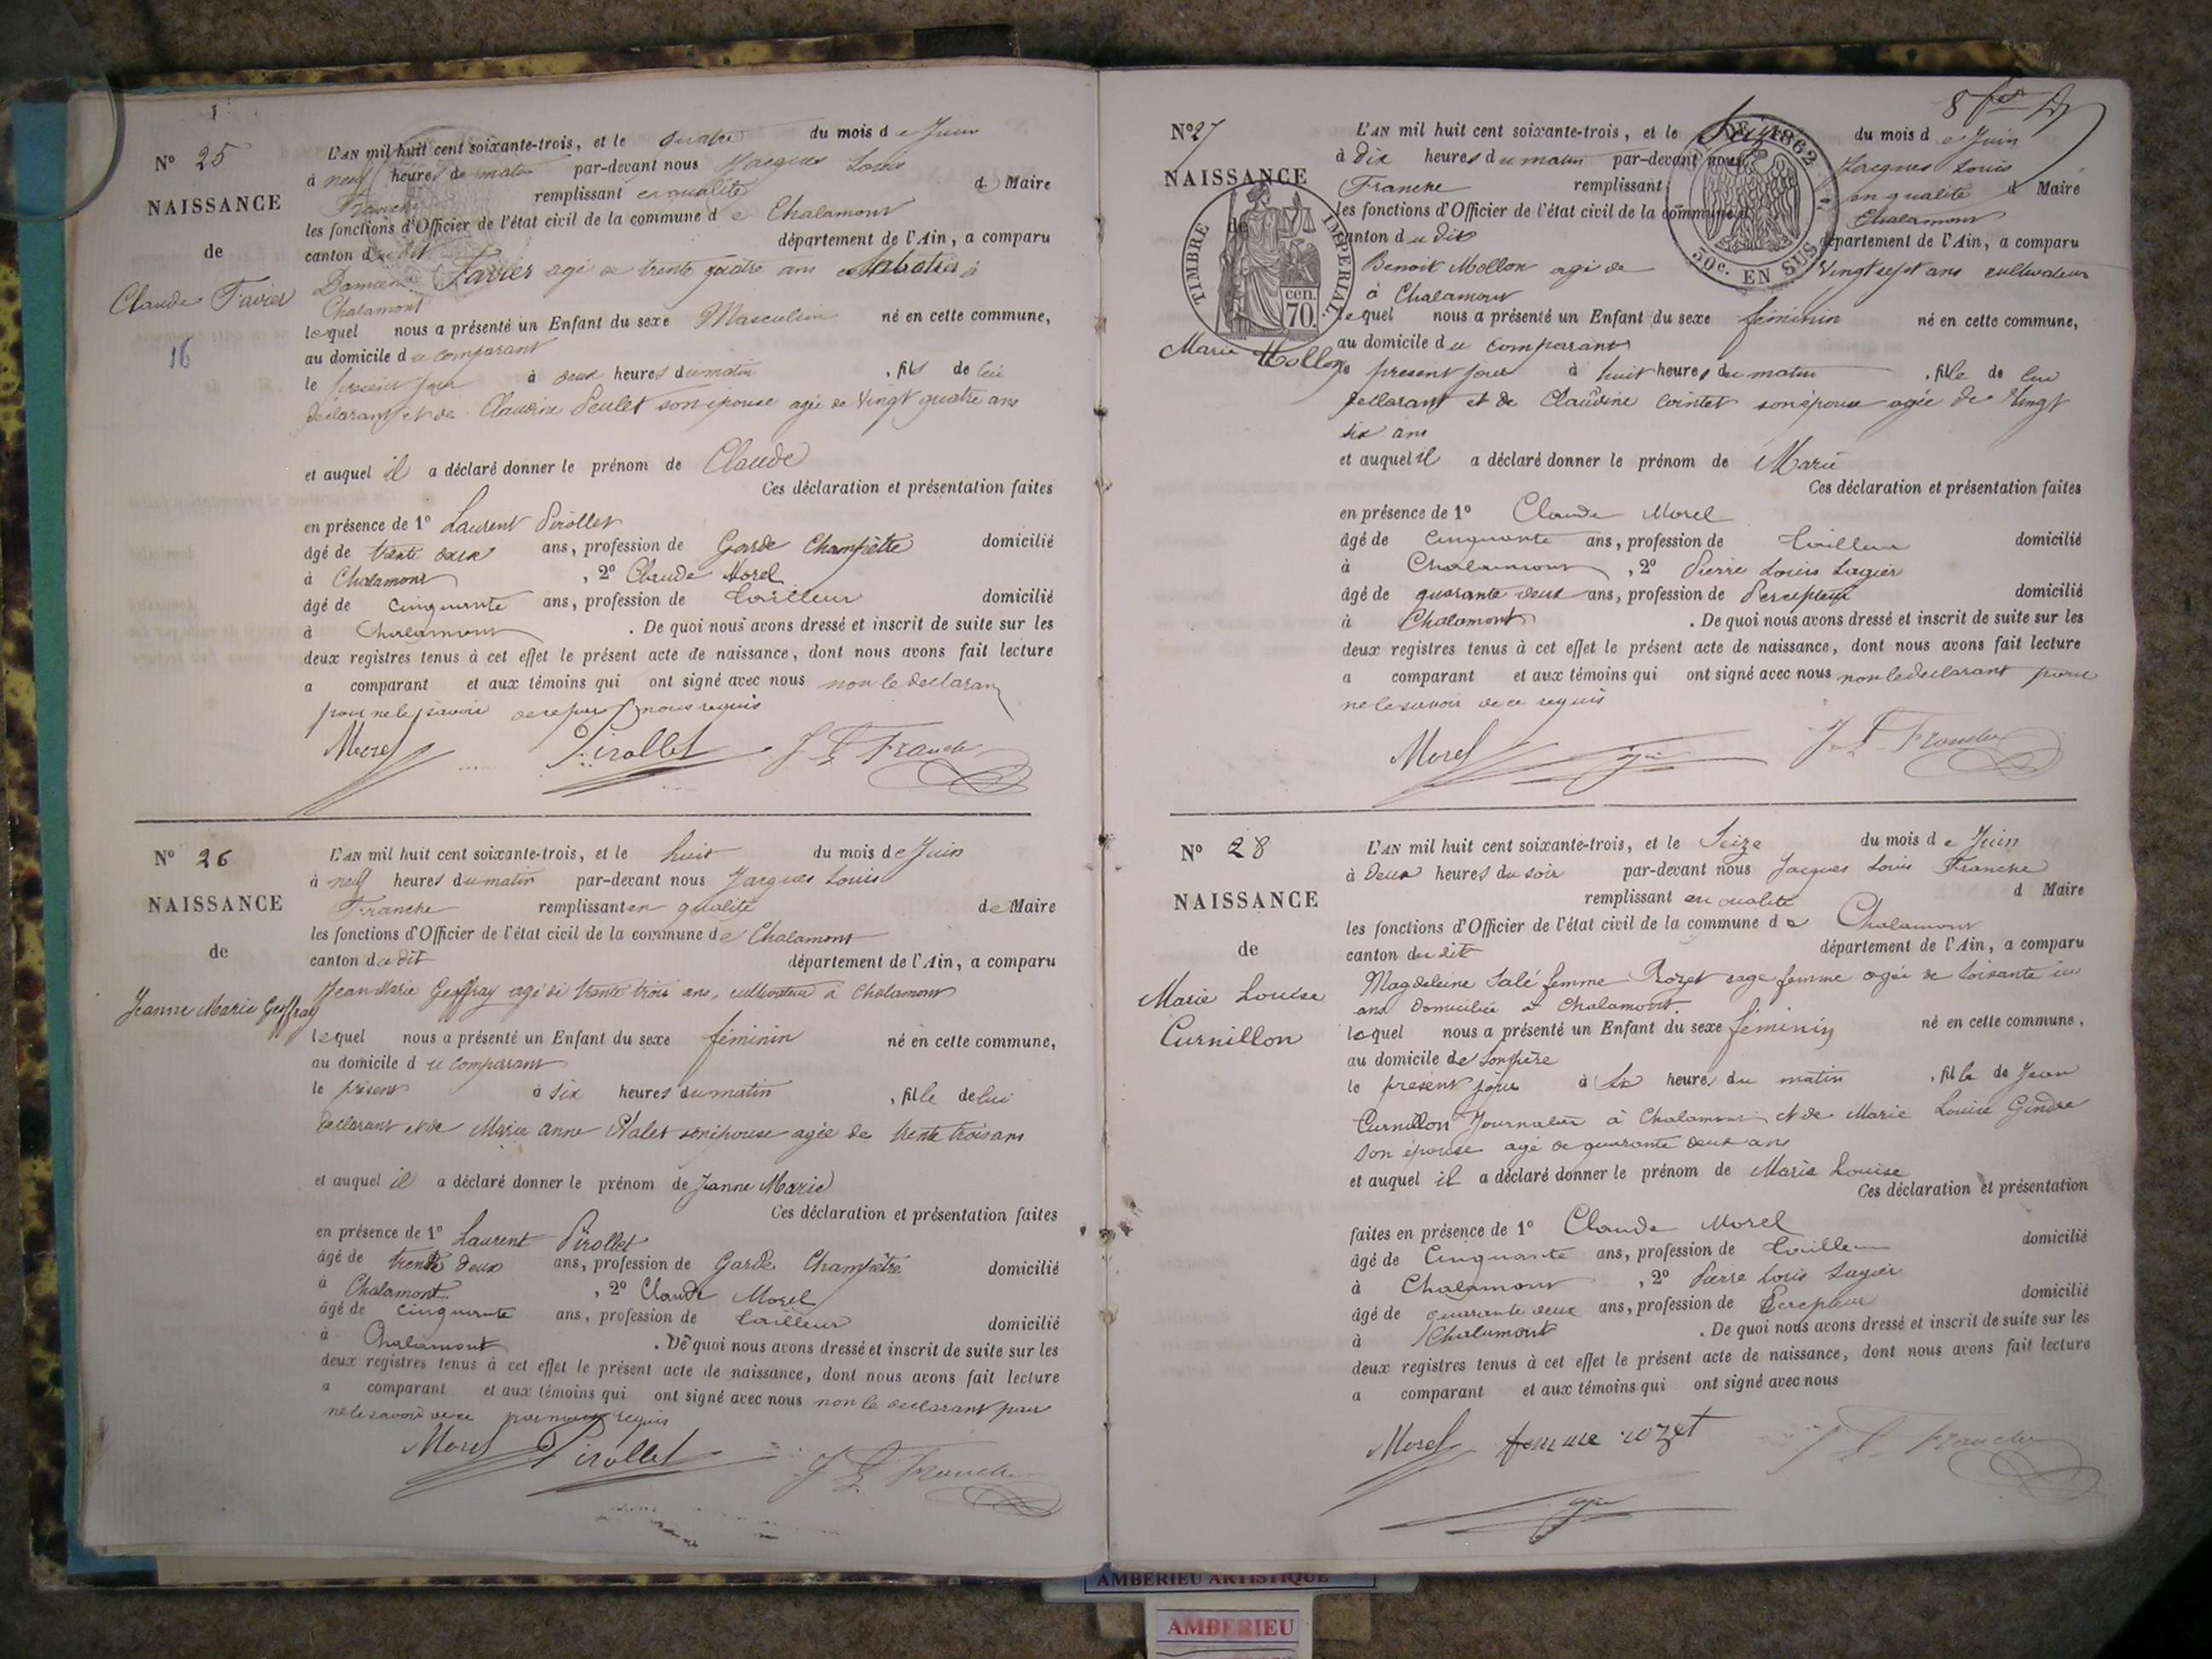 N° 25
NAISSANCE
de
Claude Favier
16
L'AN mil huit cent soixante-trois, et le quatre du mois de Juin
à neuf heures du matin par-devant nous Jacques Louis
Franche remplissant en qualité d Maire
les fonctions d'Officier de l'état civil de la commune de Chalamont
canton du dit département de l'Ain, a comparu
Damien Favier agé de trente quatre ans Sabotier à
Chalamont
lequel nous a présenté un Enfant du sexe Masculin né en cette commune,
au domicile du comparant
le présent jour à deux heures du matin , fils de lui
déclarant et de Claudine son épouse agée de Vingt quatre ans
et auquel il a déclaré donner le prénom de Claude
Ces déclaration et présentation faites
en présence de 1° Laurent Pirollet
âgé de trente deux ans, profession de Garde Champêtre domicilié
à Chalamont , 2° Claude Morel
âgé de Cinquante ans, profession de tailleur domicilié
à Chalamont . De quoi nous avons dressé et inscrit de suite sur les
deux registres tenus à cet effet le présent acte de naissance, dont nous avons fait lecture
a comparant et aux témoins qui ont signé avec nous non le declarant
pour ne le savoir de ce par nous requis
Morel Pirollet J L Franche
N° 26
NAISSANCE
de
Jeanne Marie Geoffray
L'AN mil huit cent soixante-trois, et le huit du mois de Juin
à neuf heures du matin par-devant nous Jacques Louis
Franche remplissant en qualité de Maire
les fonctions d'Officier de l'état civil de la commune de Chalamont
canton du dit département de l'Ain, a comparu
Jean Marie Geoffray agé de trente trois ans, cultivateur à Chalamont
lequel nous a présenté un Enfant du sexe féminin né en cette commune,
au domicile du comparant
le présent à six heures du matin , fille de lui
declarant et de Marie Anne son épouse agée de trente trois ans
et auquel il a déclaré donner le prénom de Jeanne Marie
Ces déclaration et présentation faites
en présence de 1° Laurent Pirollet
âgé de trente deux ans, profession de Garde Champêtre domicilié
à Chalamont , 2° Claude Morel
âgé de Cinquante ans, profession de tailleur domicilié
à Chalamont . De quoi nous avons dressé et inscrit de suite sur les
deux registres tenus à cet effet le présent acte de naissance, dont nous avons fait lecture
a comparant et aux témoins qui ont signé avec nous non le declarant pour
ne le savoir de ce par nous requis
Morel Pirollet J L Franche
8
N° 27
NAISSANCE
de
TIMBRE IMPÉRIAL
cen. 70.
Marie Mollon
DE 1862
50c. EN SUS
L'AN mil huit cent soixante-trois, et le du mois de Juin
à dix heures du matin par-devant nous Jacques Louis
Franche remplissant en qualité d Maire
les fonctions d'Officier de l'état civil de la commune d Chalamont
canton du dit département de l'Ain, a comparu
Benoit Mollon agé de Vingt sept ans cultivateur
à Chalamont
lequel nous a présenté un Enfant du sexe féminin né en cette commune,
au domicile du comparant
le present jour à huit heures du matin , fille de lui
declarant et de Claudine Cointet son épouse agée de Vingt
six ans
et auquel il a déclaré donner le prénom de Marie
Ces déclaration et présentation faites
en présence de 1° Claude Morel
âgé de Cinquante ans, profession de tailleur domicilié
à Chalamont , 2° Pierre Louis Lagier
âgé de quarante deux ans, profession de Percepteur domicilié
à Chalamont . De quoi nous avons dressé et inscrit de suite sur les
deux registres tenus à cet effet le présent acte de naissance, dont nous avons fait lecture
a comparant et aux témoins qui ont signé avec nous non le declarant pour
ne le savoir de ce requis
Morel J L Franche
N° 28
NAISSANCE
de
Marie Louise
Curnillon
L'AN mil huit cent soixante-trois, et le Seize du mois de Juin
à Deux heures du soir par-devant nous Jacques Louis Franche
remplissant en qualité d Maire
les fonctions d'Officier de l'état civil de la commune de Chalamont
canton du dit département de l'Ain, a comparu
Magdeleine Salé femme Rozet sage femme agée de soixante un
ans Domiciliée à Chalamont.
laquel nous a présenté un Enfant du sexe féminin né en cette commune,
au domicile de son père
le présent jour à Six heures du matin , fille de Jean
Curnillon Journalier à Chalamont et de Marie Louise Gindre
son épouse agé de quarante deux ans
et auquel il a déclaré donner le prénom de Marie Louise
Ces déclaration et présentation
faites en présence de 1° Claude Morel
âgé de Cinquante ans, profession de tailleur domicilié
à Chalamont , 2° Pierre Louis Lagier
âgé de quarante deux ans, profession de Percepteur domicilié
à Chalamont . De quoi nous avons dressé et inscrit de suite sur les
deux registres tenus à cet effet le présent acte de naissance, dont nous avons fait lecture
a comparant et aux témoins qui ont signé avec nous
Morel femme rozet J L Franche
AMBERIEU ARTISTIQUE
AMBERIEU